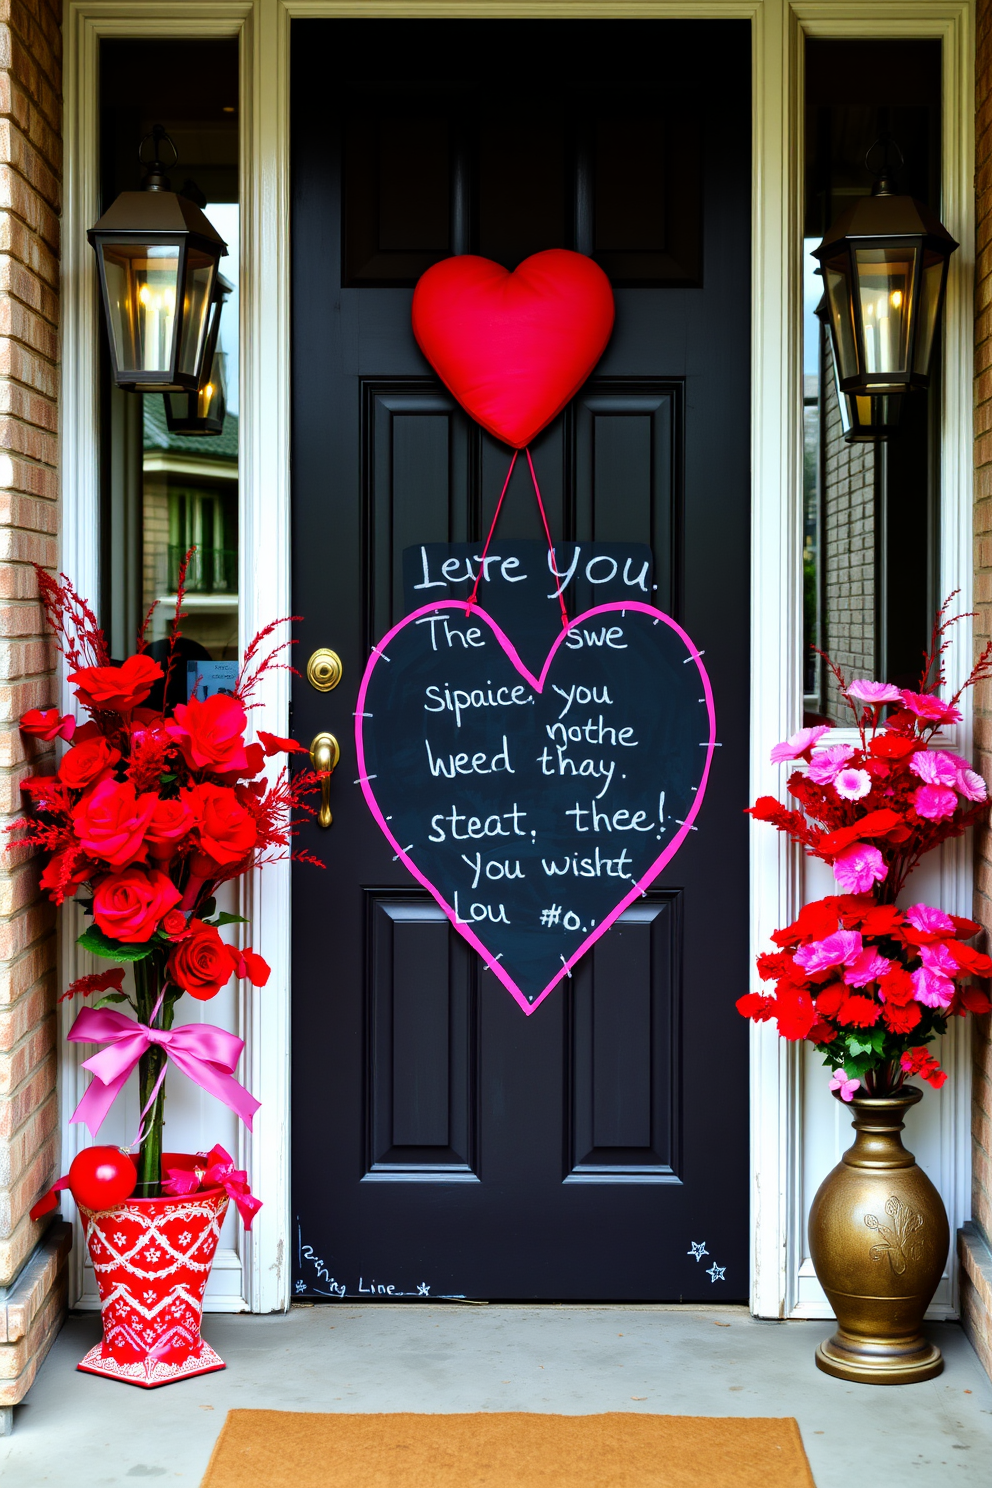 Leire you.
The swe
sipaice. you
nothe
weed thay.
steat, thee!
You wisht
Lou #o..
Line